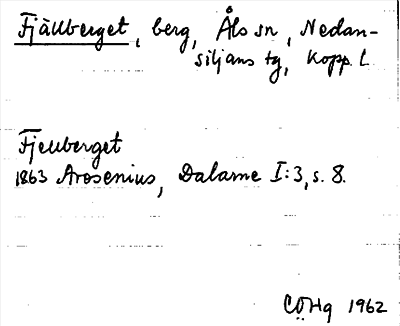 Fjällberget, berg, Åls sn, Nedan-
siljans tg, Kopp. l.
Fjellberget
1863 Arosenius, Dalarne I:3, s. 8.
CÖHg 1962